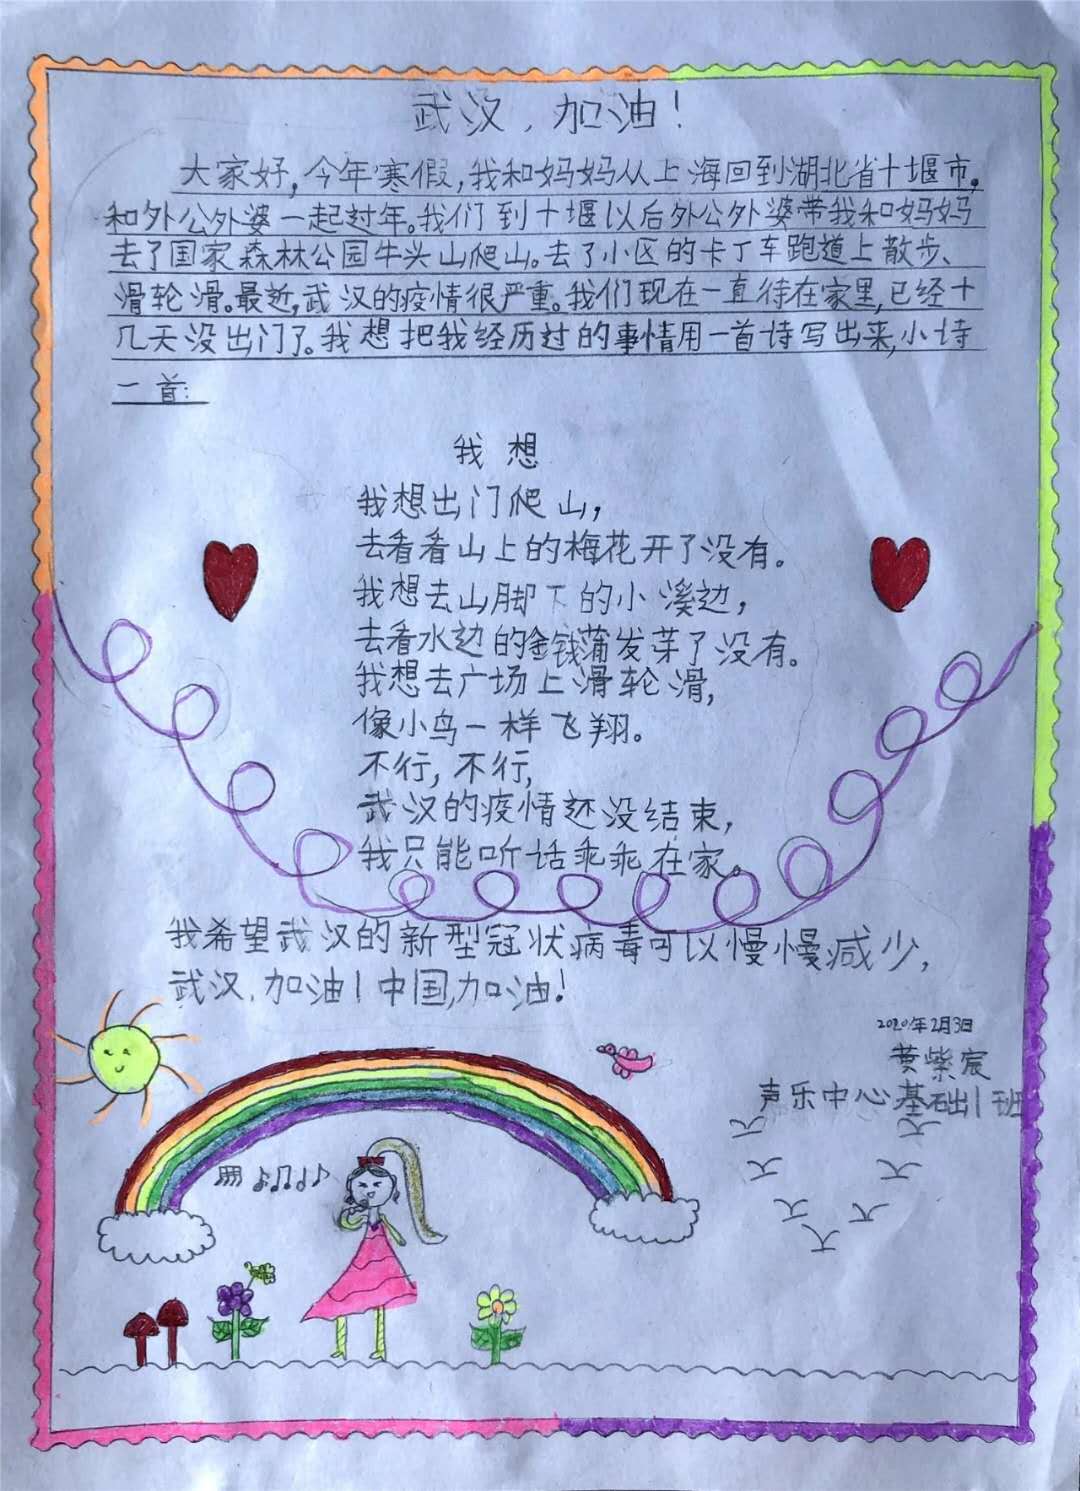 武汉，加油！
大家好，今年寒假，我和妈妈从上海回到湖北省十堰市，
和外公外婆一起过年。我们到十堰以后外公外婆带我和妈妈
去了国家森林公园牛头山爬山。去了小区的卡丁车跑道上散步、
滑轮滑。最近，武汉的疫情很严重。我们现在一直待在家里，已经十
几天没出门了。我想把我经历过的事情用一首诗写出来，小诗
一首：
我想
我想出门爬山，
去看看山上的梅花开了没有。
我想去山脚下的小溪边，
去看水边的金钱蒲发芽了没有。
我想去广场上滑轮滑，
像小鸟一样飞翔。
不行，不行，
武汉的疫情还没结束，
我只能听话乖乖在家。
我希望武汉的新型冠状病毒可以慢慢减少，
武汉，加油！中国，加油！
2020年2月3日
黄紫宸
声乐中心基础1班